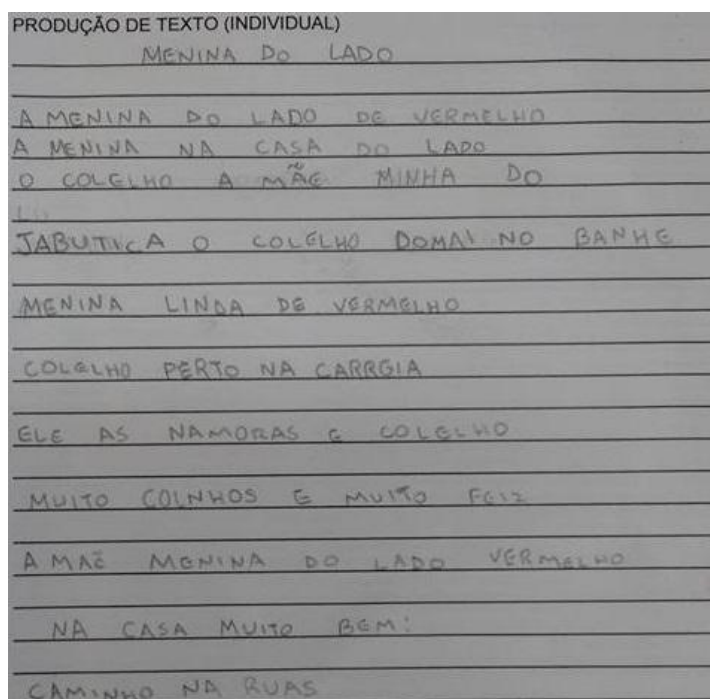 PRODUÇÃO DE TEXTO (INDIVIDUAL)
MENINA DO LADO
A MENINA DO LADO DE VERMELHO
A MENINA NA CASA DO LADO
O COLELHO A MÃE MINHA DO
JABUTICA O COLELHO DOMAI NO BANHE
MENINA LINDA DE VERMELHO
COLELHO PERTO NA CARRGIA
ELE AS NAMORAS E COLELHO
MUITO COLNHOS E MUITO FEIZ
A MAE MENINA DO LADO VERMELHO
NA CASA MUITO BEM!
CAMINHO NA RUAS